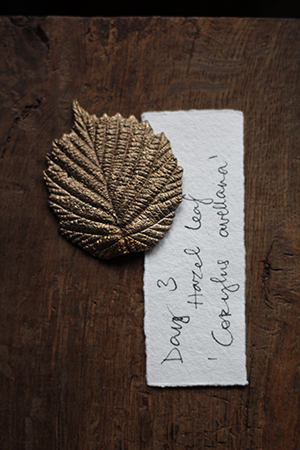 Day 3
Hazel leaf
'Corylus avellana'